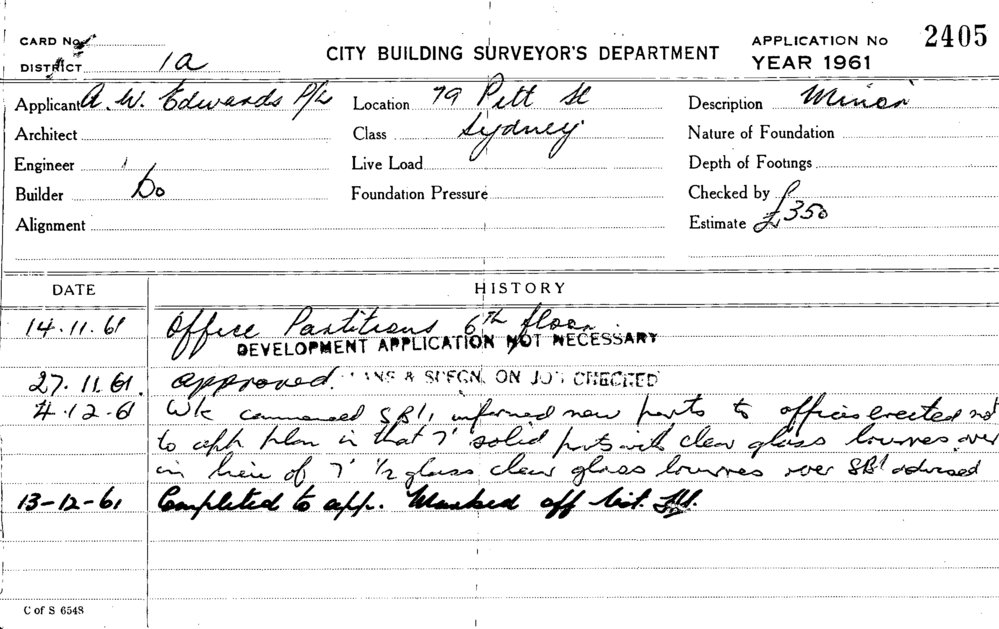 CARD No
DISTRICT 1a
CITY BUILDING SURVEYOR'S DEPARTMENT
APPLICATION No 2405
YEAR 1961
Applicant A. W. Edwards P/L
Location 79 Pitt St
Description Minor
Architect
Class Sydney
Nature of Foundation
Engineer
Live Load
Depth of Footings
Builder Do
Foundation Pressure
Checked by
Alignment
Estimate £350
DATE HISTORY
14.11.61 Office Partitions 6th floor.
DEVELOPMENT APPLICATION NOT NECESSARY
27.11.61. approved. PLANS & SPECN. ON JOB CHECKED
4.12.61 Wk commenced SBI, informed new parts to offices erected not
to app plan in that 7' solid parts with clear glass louvres over
in lieu of 7' 1/2 glass clear glass louvres over SBI advised
13-12-61 Completed to app. Marked off list.
C of S 6548